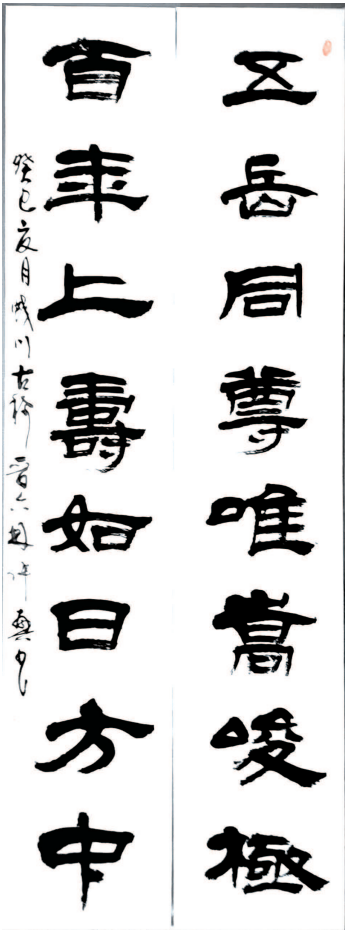 五岳同尊唯嵩峻極
百年上壽如日方中
癸巳夏月